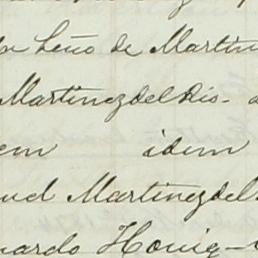 Leño de Martin
Martinez del Rio.
em idem
uel Martinez del
uardo Honig